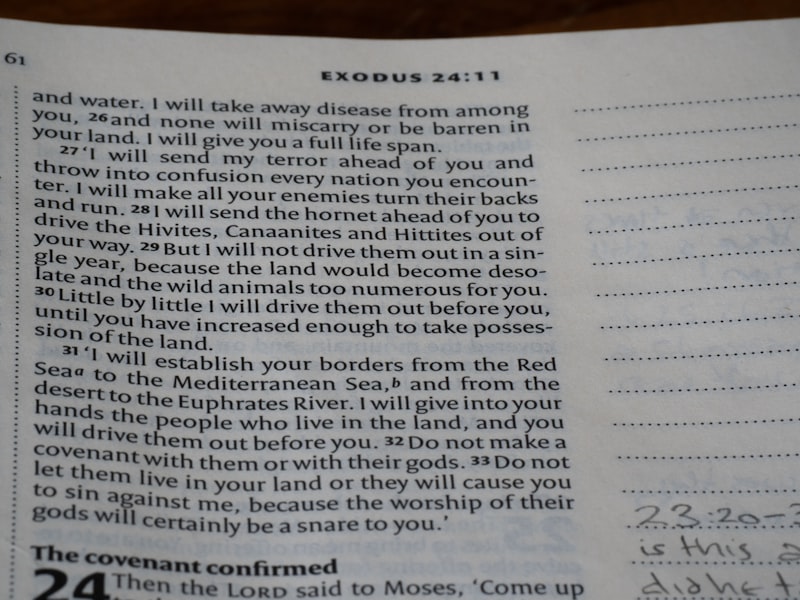 61
EXODUS 24:11
and water. I will take away disease from among
you, 26 and none will miscarry or be barren in
your land. I will give you a full life span.
27 ‘I will send my terror ahead of you and
throw into confusion every nation you encoun-
ter. I will make all your enemies turn their backs
and run. 28 I will send the hornet ahead of you to
drive the Hivites, Canaanites and Hittites out of
your way. 29 But I will not drive them out in a sin-
gle year, because the land would become deso-
late and the wild animals too numerous for you.
30 Little by little I will drive them out before you,
until you have increased enough to take posses-
sion of the land.
31 ‘I will establish your borders from the Red
Sea a to the Mediterranean Sea, b and from the
desert to the Euphrates River. I will give into your
hands the people who live in the land, and you
will drive them out before you. 32 Do not make a
covenant with them or with their gods. 33 Do not
let them live in your land or they will cause you
to sin against me, because the worship of their
gods will certainly be a snare to you.’
The covenant confirmed
24 Then the LORD said to Moses, ‘Come up
23:20-3
is this a